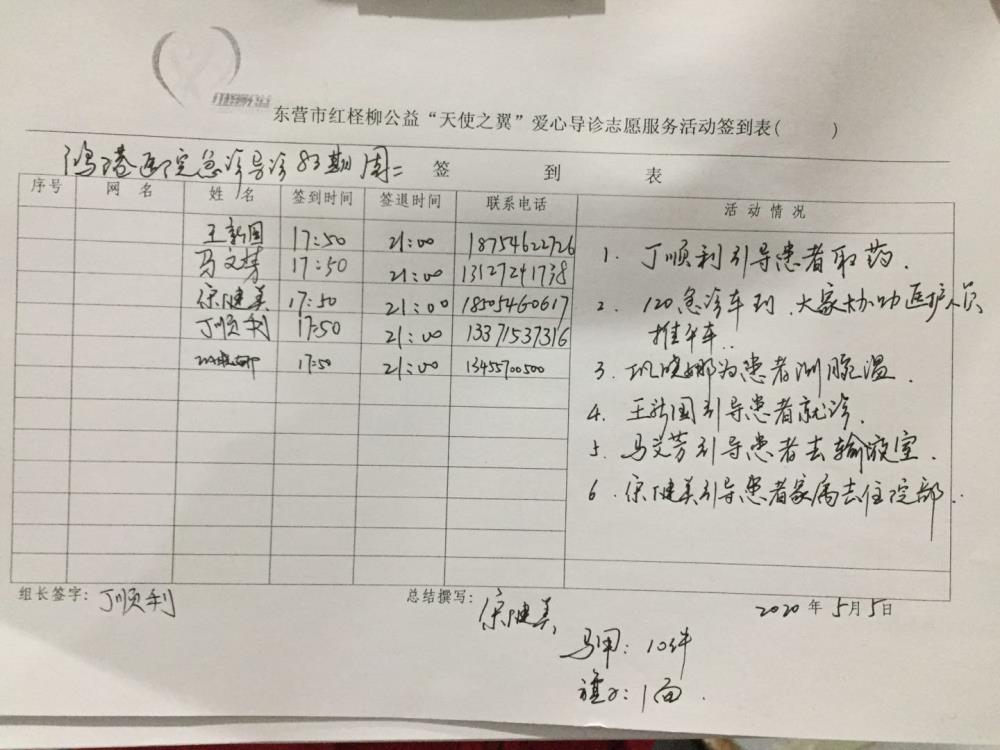 东营市红柽柳公益“天使之翼”爱心导诊志愿服务活动签到表( )
鸿港医院急诊导诊83期周二 签 到 表
序号 网 名 姓 名 签到时间 签退时间 联系电话 活 动 情 况
王新国 17:50 21:00 18754622726
马文芳 17:50 21:00 13127241738
宋健美 17:50 21:00 18505460617
丁顺利 17:50 21:00 13371537316
17:50 21:00 13455700500
1. 丁顺利引导患者取药.
2. 120急诊车到.大家协助医护人员
推平车..
3. 巩晓娜为患者测腕温.
4. 王新国引导患者就诊.
5. 马文芳引导患者去输液室.
6. 宋健美引导患者家属去住院部..
组长签字: 丁顺利 总结撰写: 宋健美 2020年5月5日
马甲: 10件
旗子: 1面.